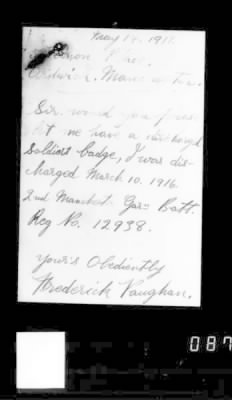 May 14. 1911.
Ardwick. Manchester.
Sir. would you please
let me have a discharged
Soldiers badge, I was dis-
charged March 10. 1916.
2nd Manchest. Gar- Batt.
Reg No. 12938.
Your's Obediently
Frederick Vaughan.
087